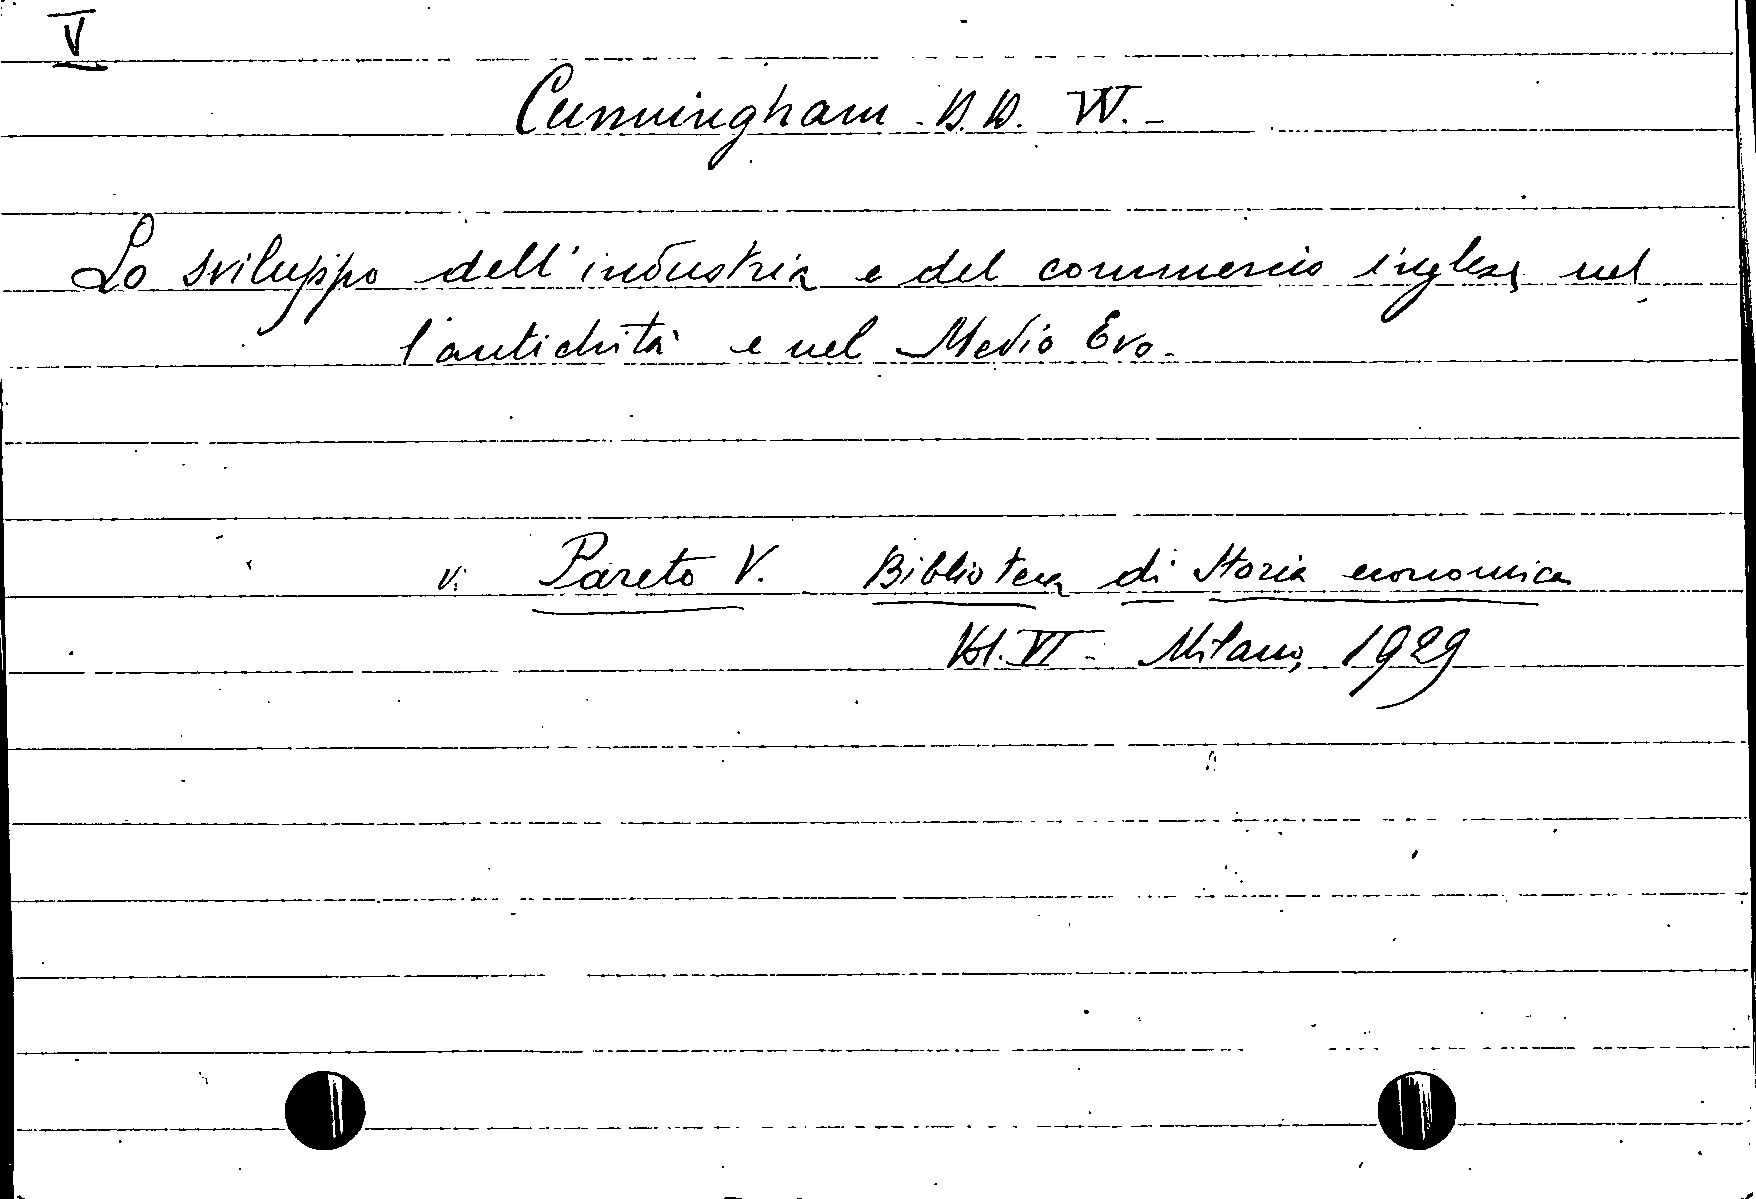 V
Cunningham D. D. W.-
Lo sviluppo dell'industria e del commercio inglese nel
l'antichità e nel Medio Evo.
v. Pareto V. Biblioteca di Storia economica
Vol. VI - Milano, 1929